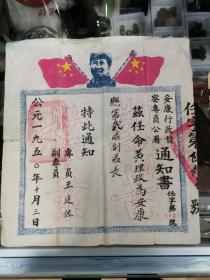 安康行政督
察專員公署
通知書
任字第 號
茲任命黃理玫為安康
縣第貳區副區長
特此通知
專員王廷佐
副專員
公元一九五〇年十月三日
號